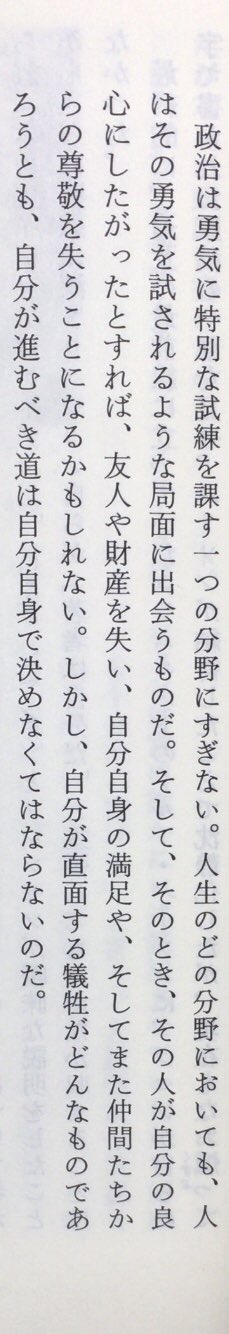 政治は勇気に特別な試練を課す一つの分野にすぎない。人生のどの分野においても、人
はその勇気を試されるような局面に出会うものだ。そして、そのとき、その人が自分の良
心にしたがったとすれば、友人や財産を失い、自分自身の満足や、そしてまた仲間たちか
らの尊敬を失うことになるかもしれない。しかし、自分が直面する犠牲がどんなものであ
ろうとも、自分が進むべき道は自分自身で決めなくてはならないのだ。